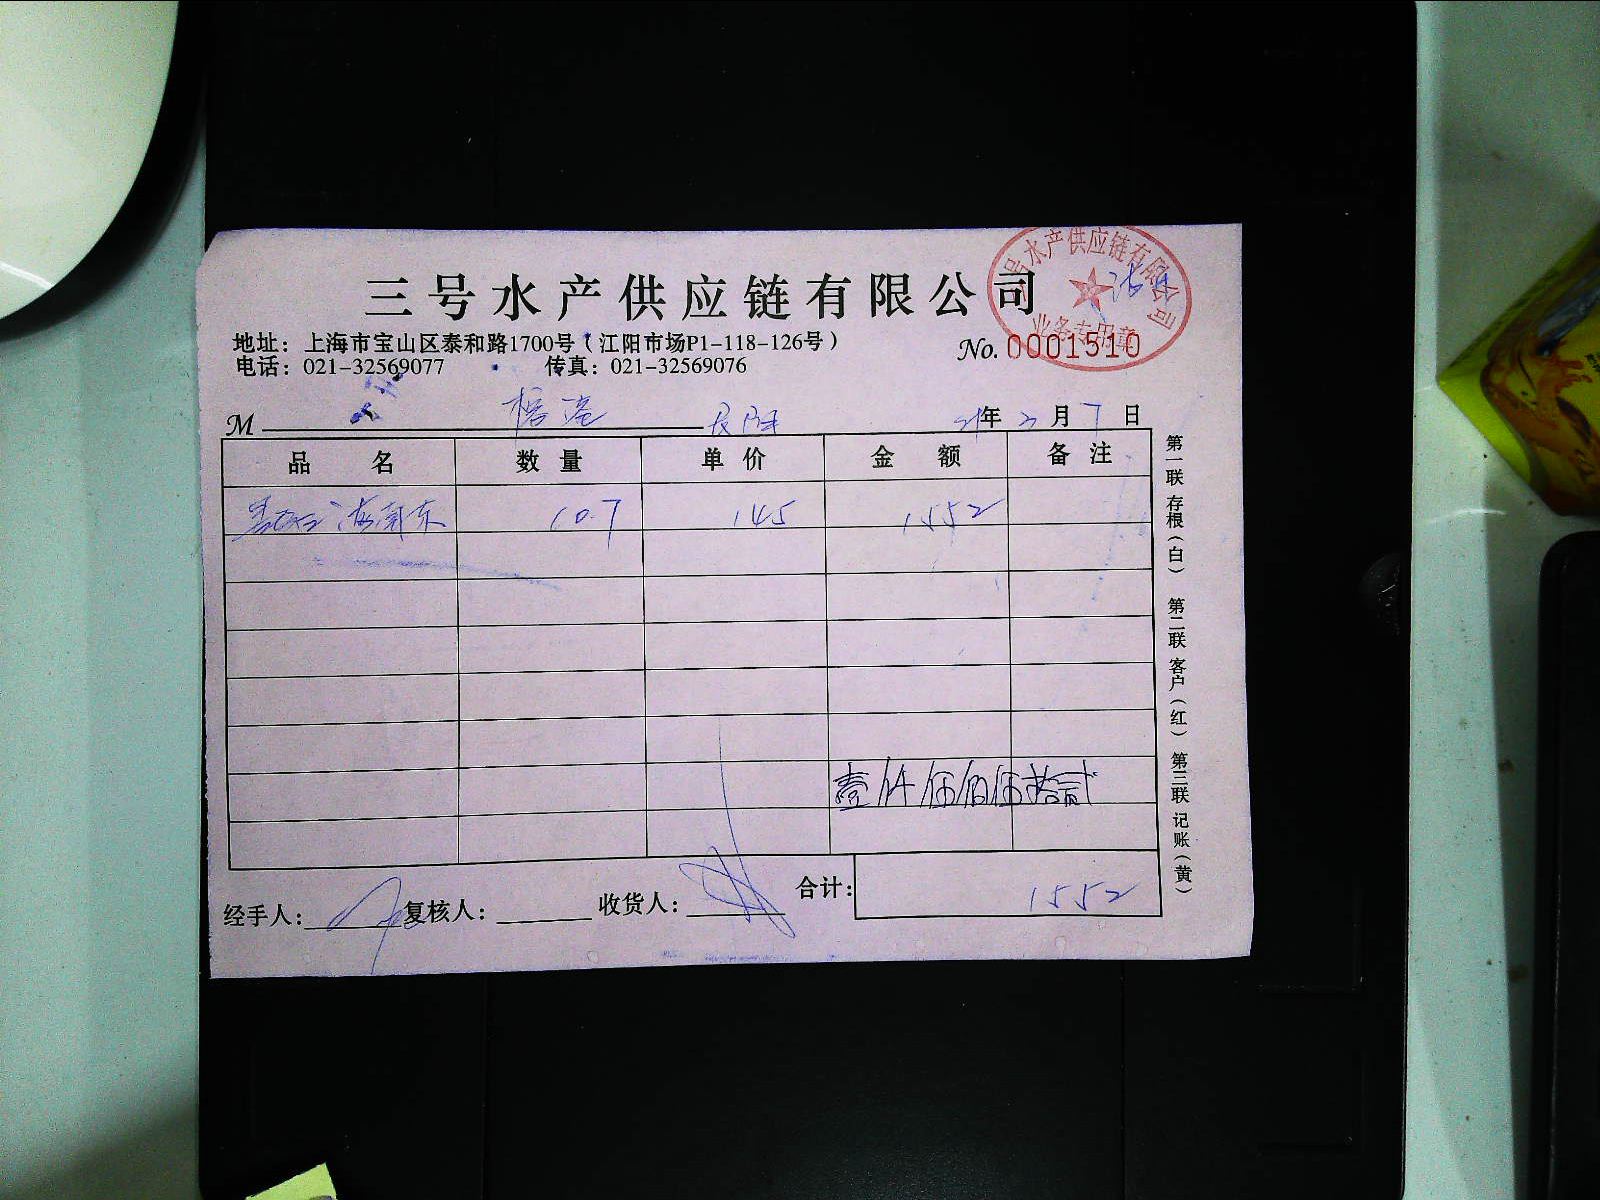 三号水产供应链有限公司
地址：上海市宝山区泰和路1700号（江阳市场P1-118-126号）
电话：021-32569077 传真：021-32569076
No. 0001510
号水产供应链有限公司
业务专用章
M 年 月 7 日
品名 数量 单价 金额 备注
海南东 10.7 145 1552
壹仟伍佰伍拾贰
经手人： 复核人： 收货人： 合计： 1552
第一联 存根（白） 第二联 客户（红） 第三联 记账（黄）